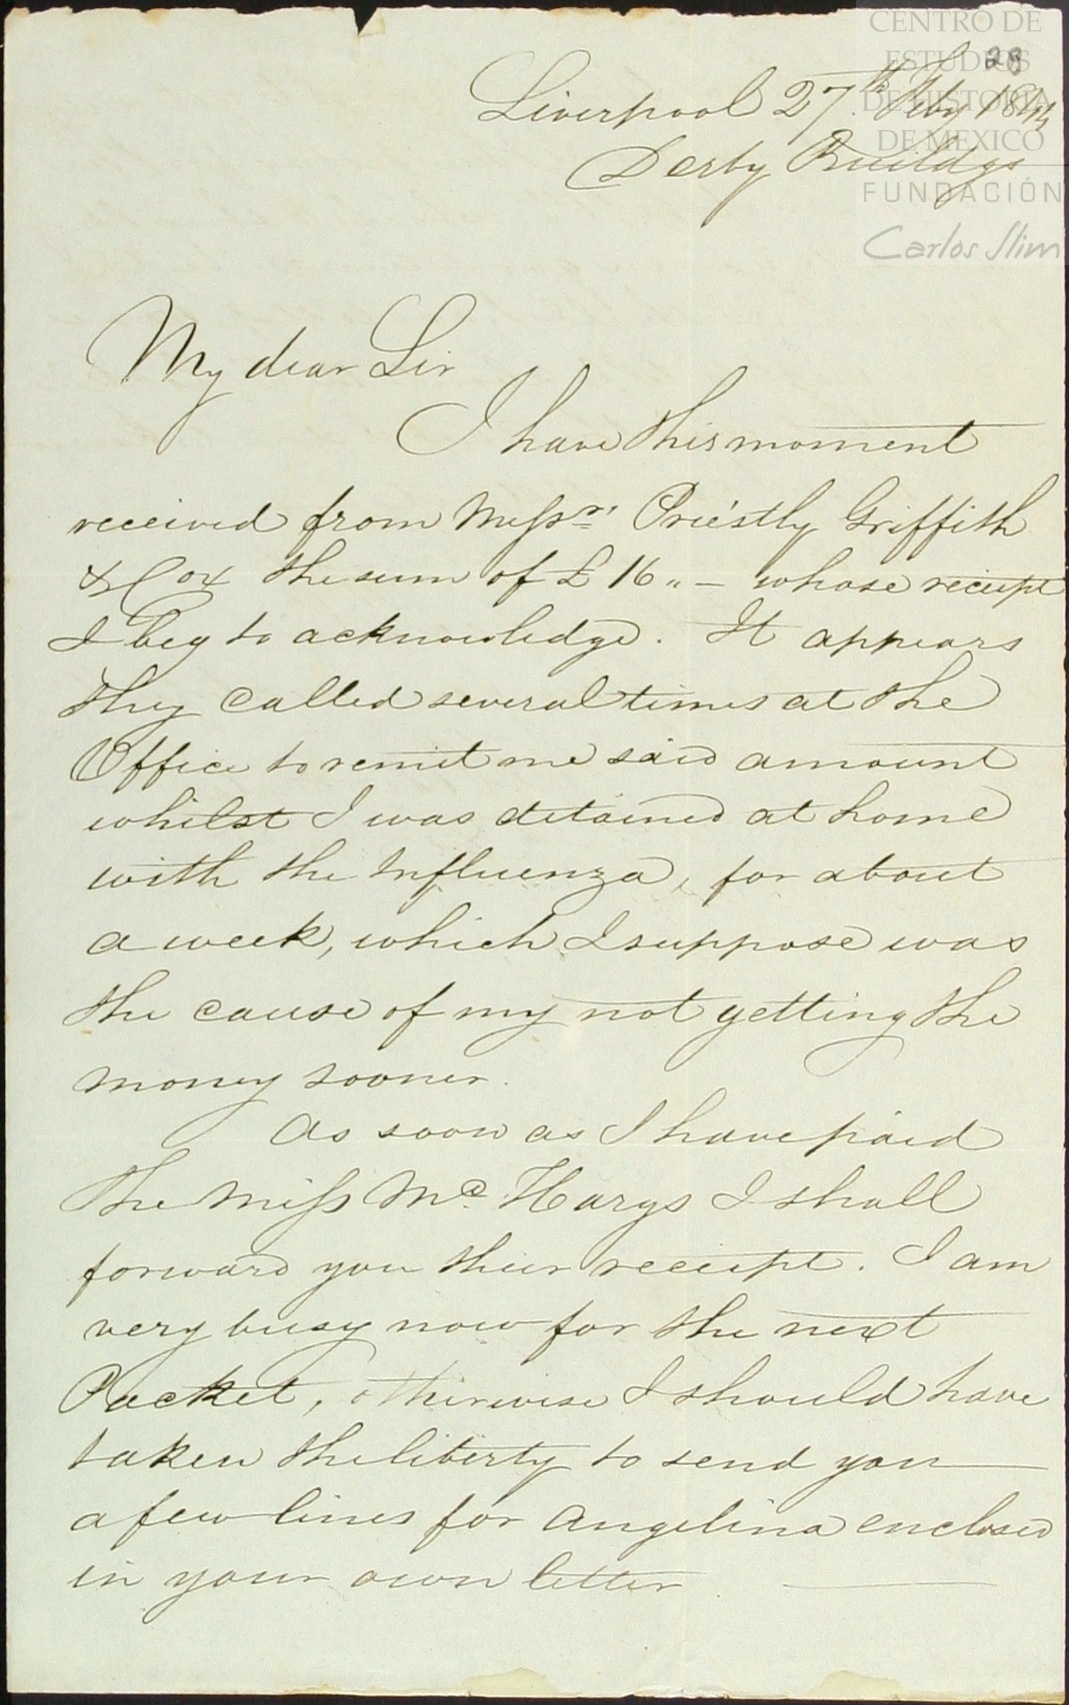 CENTRO DE
ESTUDIOS
DE HISTORIA
DE MEXICO
FUNDACIÓN
Carlos Slim
28
Liverpool 27th Feby 1844
Derby Buildgs
My dear Sir
I have this moment
received from Messrs. Priestly Griffith
& Cox the sum of £16 „ – whose reciept
I beg to acknowledge. It appears
they called several times at the
Office to remit me said amount
whilst I was detained at home
with the Influenza, for about
a week, which I suppose was
the cause of my not getting the
money sooner.
As soon as I have paid
the Miss Mc. Hargs I shall
forward you their reciept. I am
very busy now for the next
Packet, otherwise I should have
taken the liberty to send you
a few lines for Angelina enclosed
in your own letter.